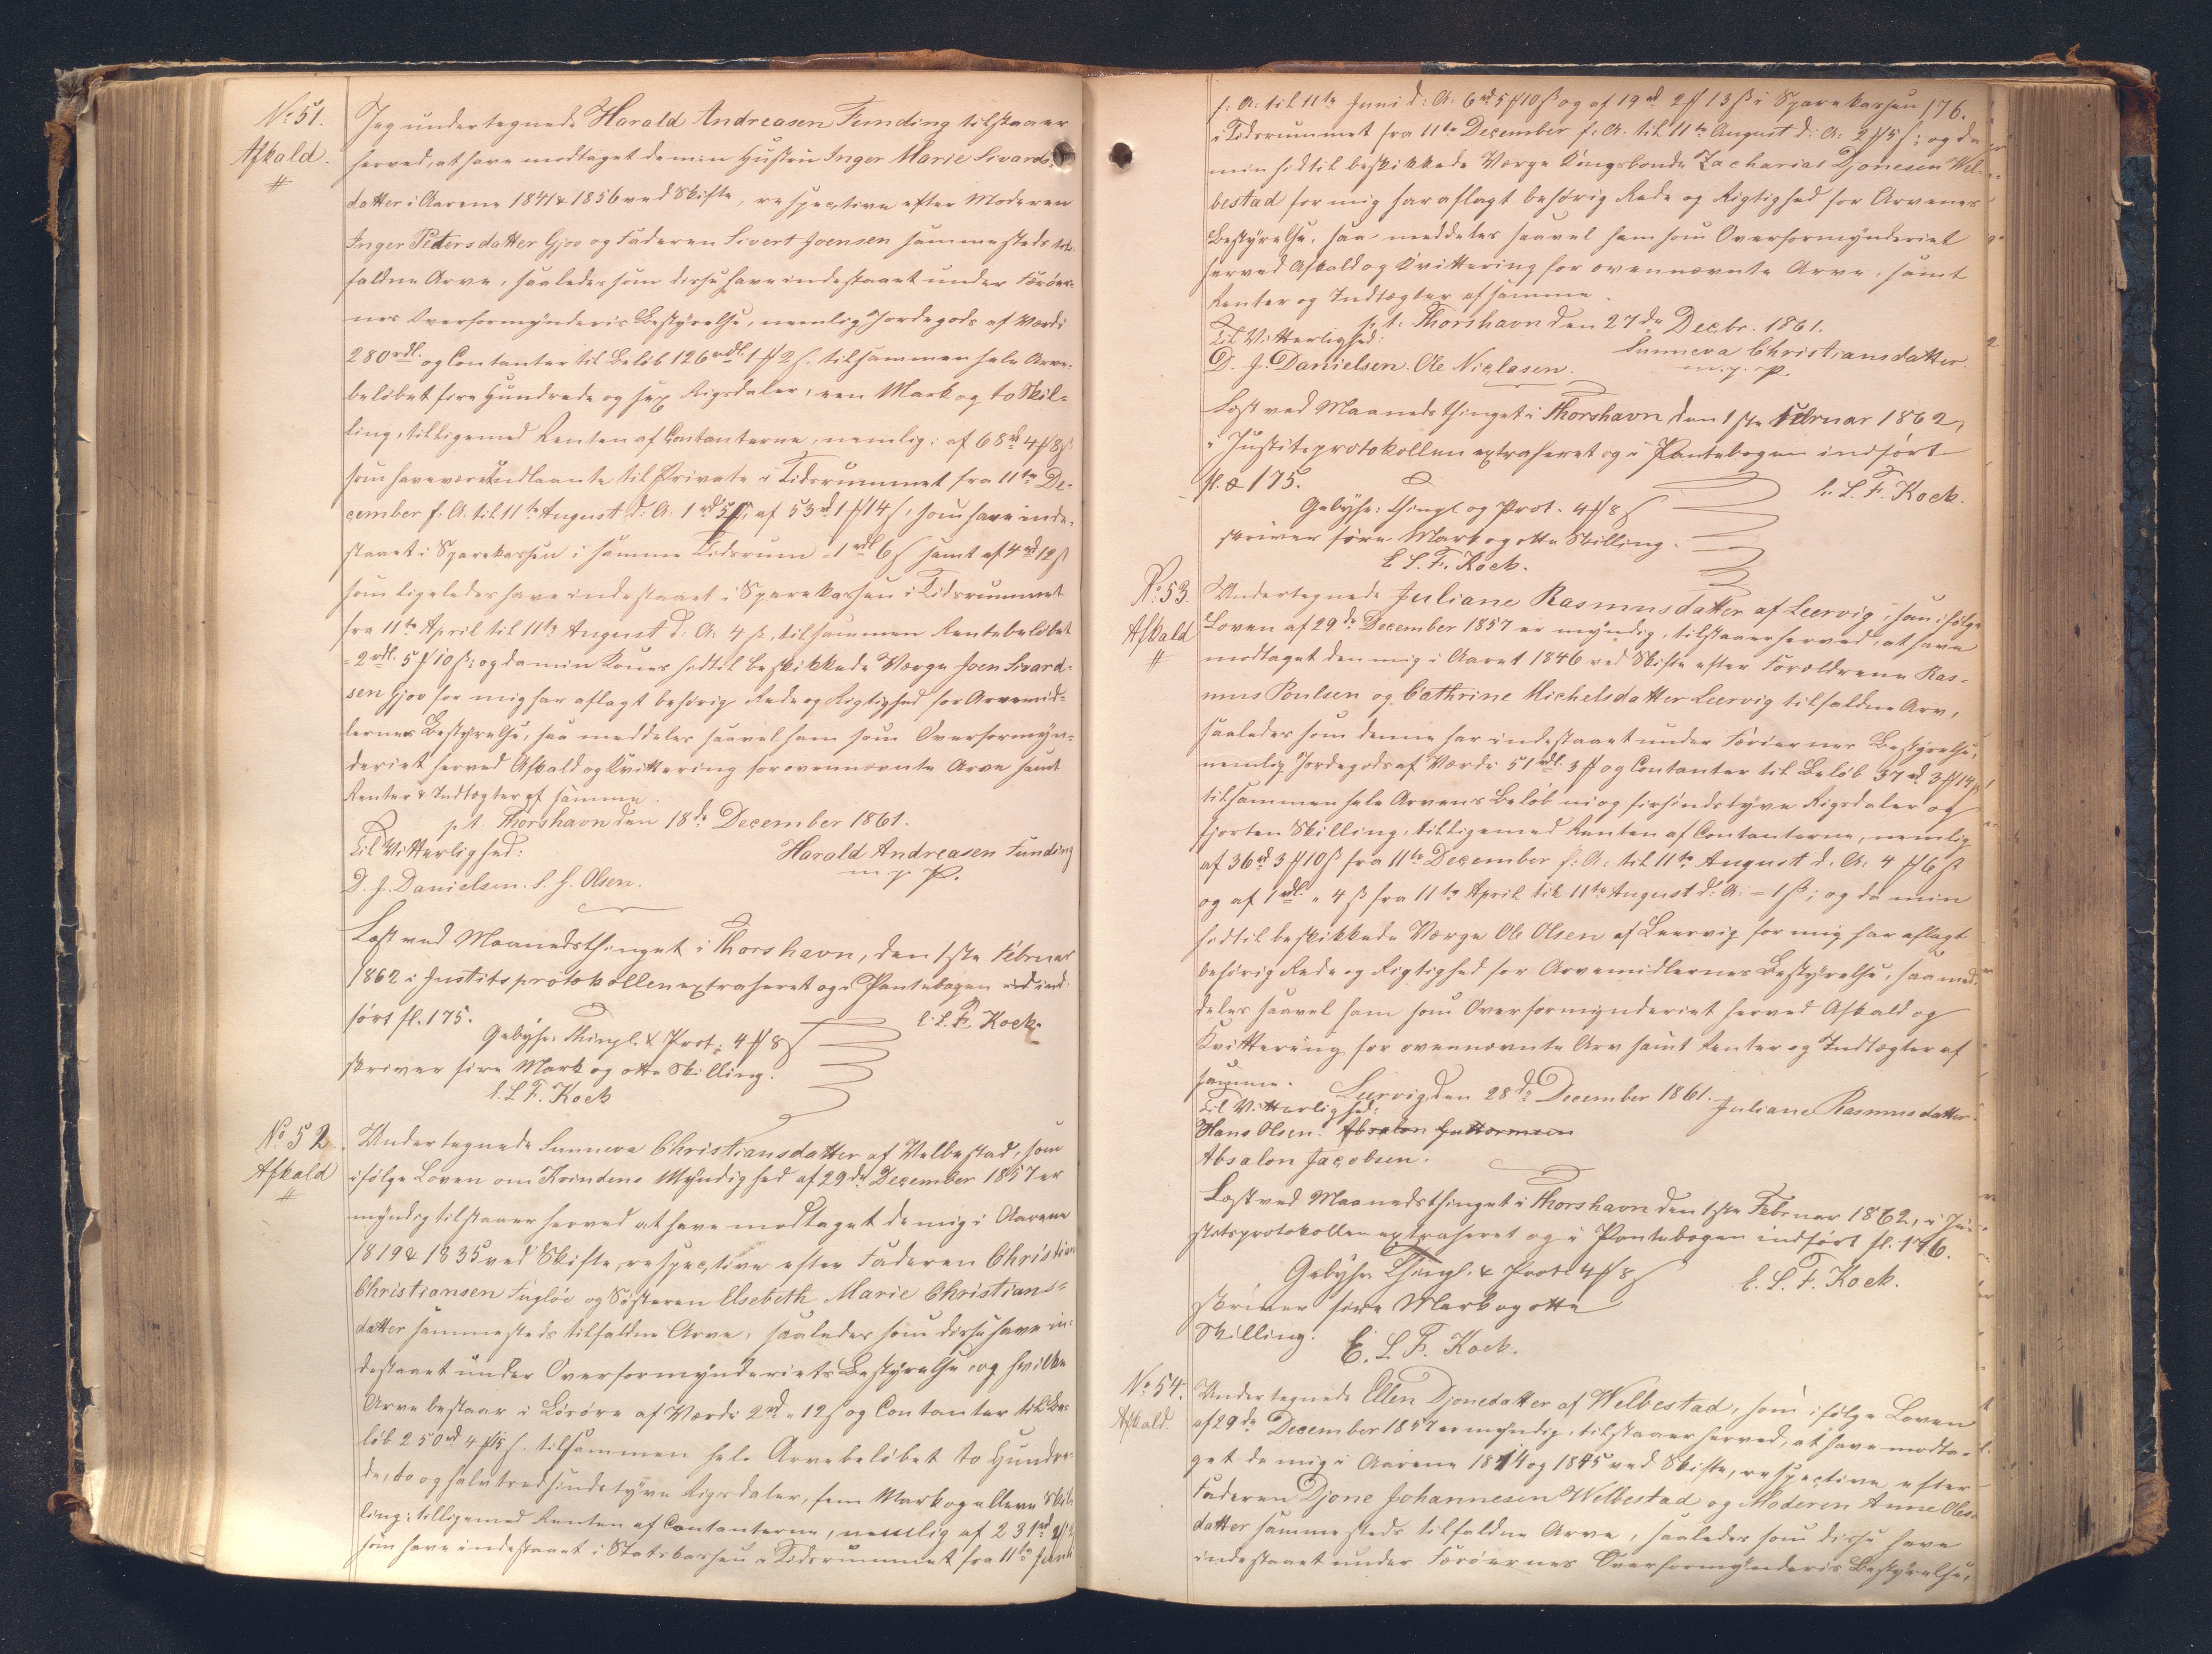 No 51.
Afkald.
Jeg undertegnede Harald Andreasen Funding tilstaaer
herved, at have modtaget de min Hustru Inger Marie Sivards-
datter i Aarene 1841 & 1856 ved Skifte, respective efter Moderen
Inger Petersdatter Gjov og Faderen Sivert Joensen sammesteds til-
faldne Arve, saaledes som disse have indestaaet under Færøer-
nes Overformynderis Bestyrelse, nemlig Jordegods af Værdi
280 rdl. og Contanter til Beløb 126 rdl. 1 # 2 ß. tilsammen hele Arve-
beløbet fire Hundrede og sex Rigsdaler, een Mark og to Skil-
ling, tilligemed Renten af Contanterne, nemlig: af 68 rd 4 # 8 ß
som have været udlaante til Private i Tidsrummet fra 11te De-
cember f: A: til 11te August d: A: 1 rd 5 #, af 53 rd 1 # 14 ß, som have inde-
staaet i Sparekassen i samme Tidsrum 1 rdl 6 ß samt af 4 rd 12 ß
som ligeledes have indestaaet i Sparekassen i Tidsrummet
fra 11te April til 11te August d: A: 4 ß, tilsammen Rentebeløbet
2 rdl. 5 # 10 ß; og da min Kones hidtil beskikkede Værge Joen Sivard-
sen Gjov for mig har aflagt behørig Rede og Rigtighed for Arvemid-
lernes Bestyrelse, saa meddeles saavel ham som Overformyn-
deriet herved Afkald og Kvittering for ovennævnte Arve samt
Renter & Indtægter af samme.
p. t. Thorshavn den 18de December 1861.
Til Vitterlighed:
Harald Andreasen Funding
D. J. Danielsen. S. H. Olsen.
m. p. P.
Læst ved Maanedsthinget i Thorshavn, den 1ste Februar
1862 i Justitsprotokollen extraheret og i Pantebogen ind-
ført fl. 175.
E. L. F. Kock.
Gebyhr: Thingl. & Prot: 4 # 8 ß
skriver fire Mark og otte Skilling.
E. L. F. Kock
No 52.
Afkald
Undertegnede Sunneva Christiansdatter af Velbestad, som
ifølge Loven om Kvindens Myndighed af 29de December 1857 er
myndig tilstaaer herved at have modtaget de mig i Aarene
1819 & 1835 ved Skifte, respective efter Faderen Christian
Christiansen Fugløe og Søsteren Elsebeth Marie Christians-
datter sammesteds tilfaldne Arve, saaledes som disse have in-
destaaet under Overformynderiets Bestyrelse, og hvilke
Arve bestaar i Løsøre af Værdi 2 rd. „ 12 ß og Contanter til Be-
løb 250 rd 4 # 15 ß. tilsammen hele Arvebeløbet to Hundre-
de, to og halvtredsindstyve Rigsdaler, fem Mark og elleve Skil-
ling; tilligemed Renten af Contanterne, nemlig af 231 rd
som have indestaaet i Statskassen i Tidsrummet fra 11te Juni
f: A: til 11te Juni d: A: 6 rd 5 # 10 ß og af 19 rd 2 # 13 ß i Sparekassen
176.
i Tidsrummet fra 11te December f: A. til 11te August d: A: 2 # 5 ß; og da
min hidtil beskikkede Værge Kongsbonde Zacharias Djonesen Wel-
bestad for mig har aflagt behørig Rede og Rigtighed for Arvenes
Bestyrelse, saa meddeles saavel ham som Overformynderiet
herved Afkald og Kvittering for ovennævnte Arve, samt
Renter og Indtægter af samme.
p. t. Thorshavn den 27de Decbr. 1861.
Til Vitterlighed:
Sunneva Christiansdatter.
D. J. Danielsen. Ole Niclasen.
m. p. P.
Læst ved Maanedsthinget i Thorshavn den 1ste Februar 1862,
i Justitsprotokollen extraheret og i Pantebogen indført
fl. 175.
E. L. F. Kock.
Gebyhr: Thingl og Prot. 4 # 8 ß
skriver fire Mark og otte Skilling.
E. L. F. Kock.
No 53.
Afkald
Undertegnede Juliane Rasmusdatter af Leervig, som ifølge
Loven af 29de December 1857 er myndig, tilstaaer herved, at have
modtaget den mig i Aaret 1846 ved Skifte efter Forældrene Ras-
mus Poulsen og Cathrine Michelsdatter Leervig tilfaldne Arv,
saaledes som denne har indestaaet under Færøernes Bestyrelse,
nemlig Jordegods af Værdi 51 rdl. 3 # og Contanter til Beløb 37 rd. 3 # 14 ß
tilsammen hele Arvens Beløb ni og firsindstyve Rigsdaler og
fjorten Skilling, tilligemed Renten af Contanterne, nemlig
af 36 rd 3 # 10 ß fra 11te December f: A: til 11te August d. A: 4 # 6 ß
og af 1 rdl. „ 4 ß fra 11te April til 11te August d: A: 1 ß; og da min
hidtil beskikkede Værge Ole Olsen af Leervig for mig har aflagt
behørig Rede og Rigtighed for Arvemidlernes Bestyrelse, saa med-
deles saavel ham som Overformynderiet herved Afkald og
Kvittering for ovennævnte Arv samt Renter og Indtægter af
samme.
Leervig den 28de December 1861.
Til Vitterlighed:
Juliane Rasmusdatter.
Hans Olsen. Absalon Guttormsen
Absalon Jacobsen.
Læst ved Maanedsthinget i Thorshavn den 1ste Februar 1862, i Ju-
stitsprotokollen extraheret og i Pantebogen indført fl. 176.
Gebyhr Thingl. & Prot 4 # 8 ß
E. L. F. Kock.
skriver fire Mark og otte
Skilling.
E. L. F. Kock.
No 54.
Afkald.
Undertegnede Ellen Djonedatter af Welbestad, som ifølge Loven
af 29de December 1857 er myndig, tilstaaer herved, at have modta-
get de mig i Aarene 1814 og 1845 ved Skifte, respective efter
Faderen Djone Johannesen Welbestad og Moderen Anne Oles-
datter sammesteds tilfaldne Arve, saaledes som disse have
indestaaet under Færøernes Overformynderis Bestyrelse,